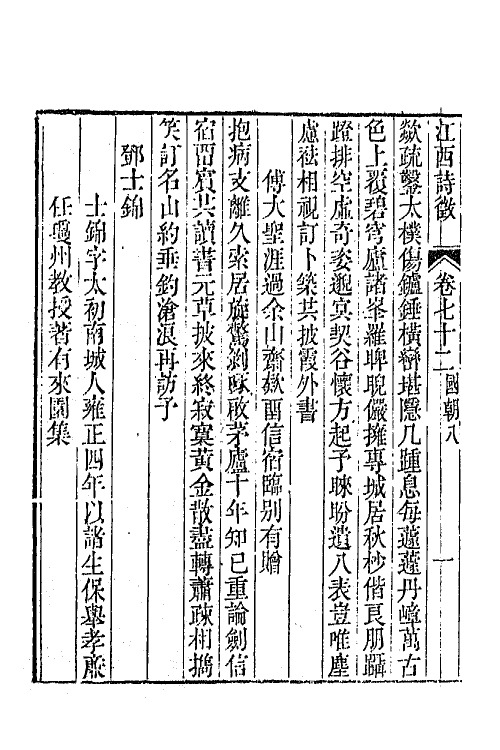 江西詩徵 卷七十二 國朝八 一
歘疏鑿太樸傷鑪錘橫巒堪隱几踵息每蘧蘧丹嶂萬古
色上覆碧穹廬諸峯羅睥睨儼擁專城居秋杪偕良朋躡
蹬排空虛奇姿邈冥契谷懷方起予睞盼遺八表豈唯塵
慮祛相視訂卜築共披霞外書
傅大聖涯過余山齋欵留信宿臨別有贈
抱病支離久索居旋驚剝啄啟茅廬十年知已重論劍信
宿留賓共讀書元草披來終寂寞黃金散盡轉蕭疎相攜
笑訂名山約垂釣滄浪再訪予
鄧士錦
士錦字太初南城人雍正四年以諸生保舉孝廉
任夔州教授著有來園集